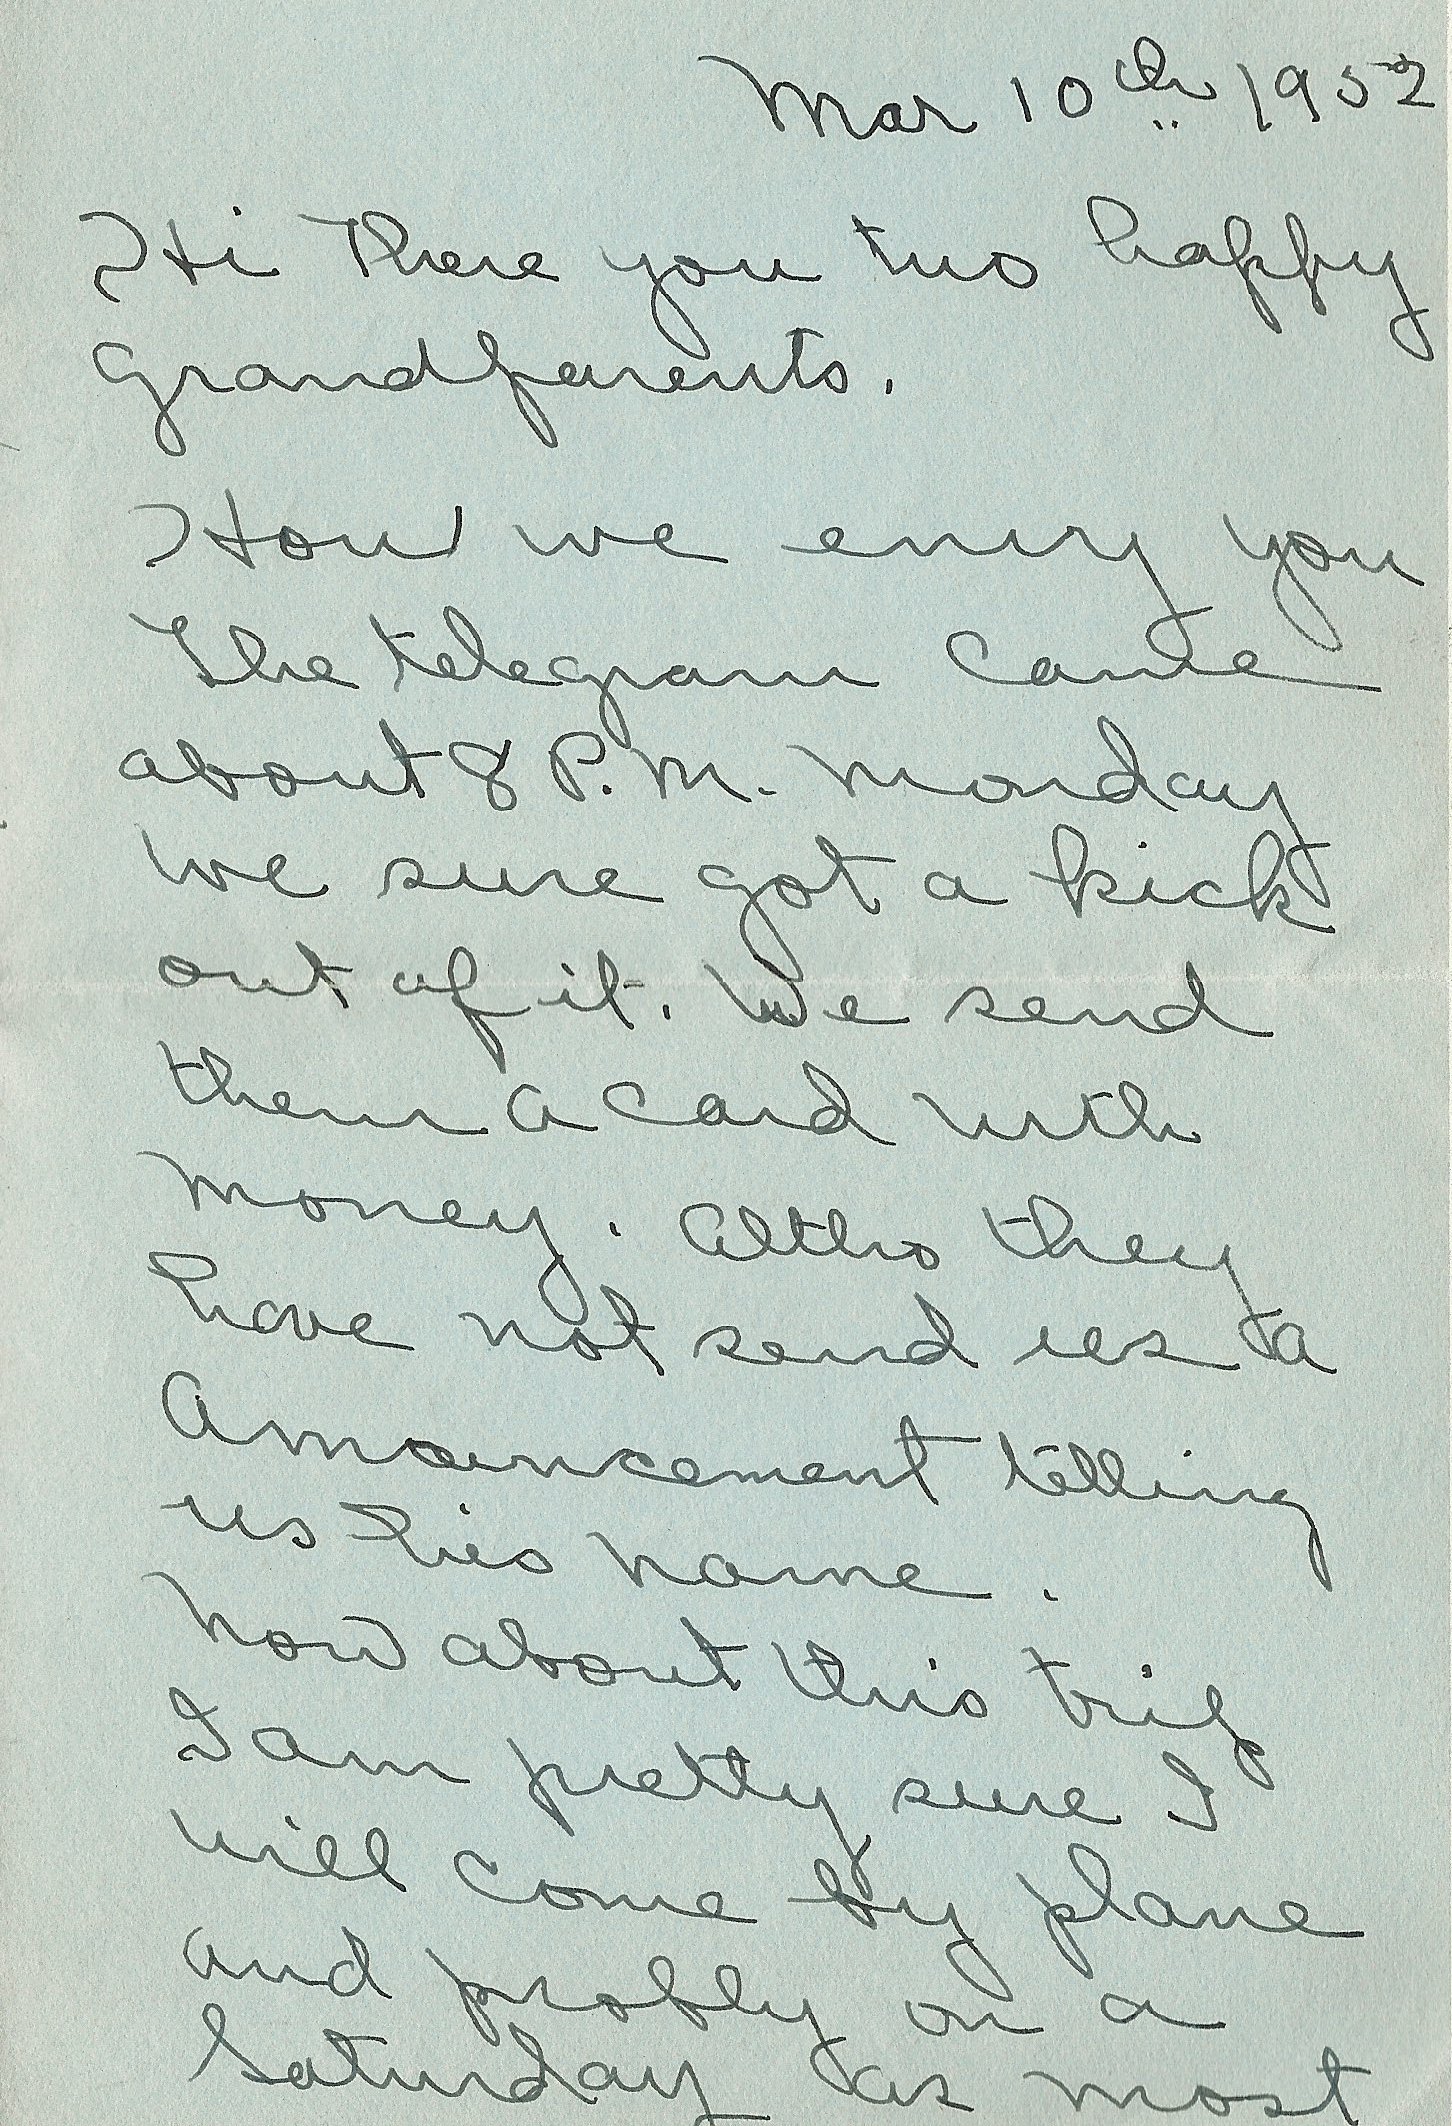 Mar 10th 1952
Hi There you two happy
Grandparents.
How we envy you
The telegram came
about 8 P.M. Monday
We sure got a kick
out of it. We send
them a card with
money. Altho they
have not send us a
Announcement telling
us his name.
Now about this trip
I am pretty sure I
will come by plane
and probly on a
Saturday as most